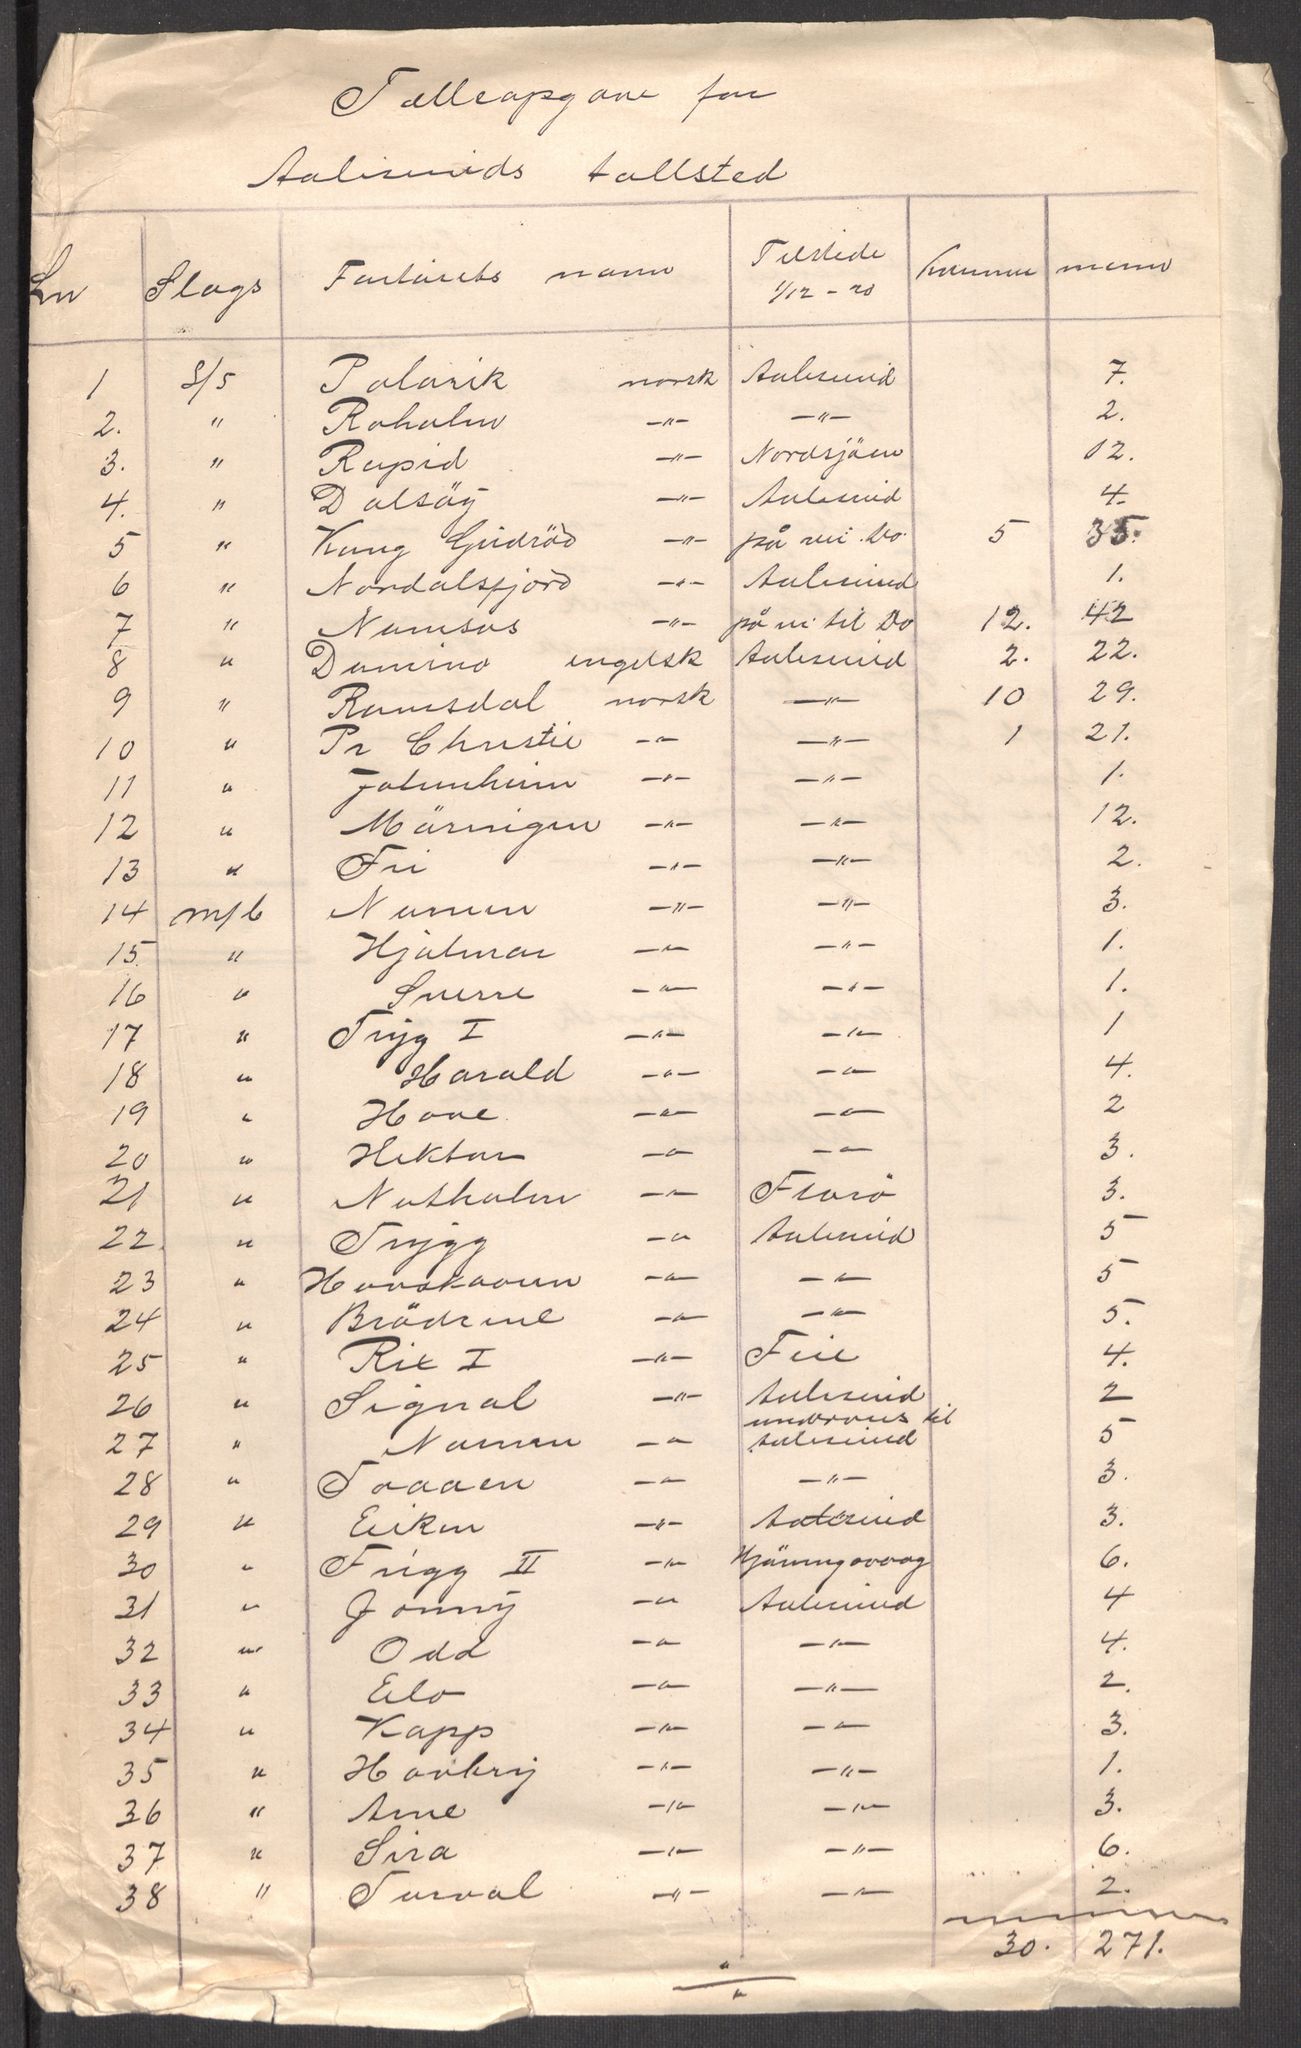 Tælleopgave for
Aalesunds tollsted
Lnr Slags Fartøiets navn Tilstede 1/12 - 20 kvinner menn
1 S/S Polarik norsk Aalesund 7.
2. " Roholm -"- -"- 2.
3. " Rapid -"- Nordsjöen 12.
4. " Dalsöy -"- Aalesund 4.
5 " Kong Gudröd -"- på vei. Do. 5 35.
6 " Nordalsfjord -"- Aalesund 1.
7 " Namsos -"- på vei til Do 12. 42
8 " Domino engelsk Aalesund 2. 22.
9 " Romsdal norsk -"- 10 29.
10 " Pr Christie -"- -"- 1 21.
11 " Jotunheim -"- -"- 1.
12 " Möringen -"- -"- 12.
13 " Fri -"- -"- 2.
14 m/b Numen -"- -"- 3.
15. " Hjalmar -"- -"- 1.
16 " Sverre -"- -"- 1.
17 " Tryg I -"- -"- 1
18 " Harald -"- -"- 4.
19 " Hove -"- -"- 2
20 " Hektor -"- -"- 3.
21 " Notholm -"- Florö 3.
22. " Trygg -"- Aalesund 5
23 " Havskaaren -"- -"- 5
24 " Brödrene -"- -"- 5.
25 " Rix I -"- Feie 4.
26 " Signal -"- Aalesund 2
27 " Numen -"- underveis til Aalesund 5
28 " Toaaen -"- -"- 3.
29 " Eiken -"- Aalesund 3.
30 " Frigg II -"- Hjörungavaag 6.
31 " Jonny -"- Aalesund 4
32 " Odd -"- -"- 4.
33 " Elo -"- -"- 2.
34 " Kapp -"- -"- 3.
35 " Havbryn -"- -"- 1.
36 " Arne -"- -"- 3.
37 " Sira -"- -"- 6.
38 " Torval -"- -"- 2.
30. 271.